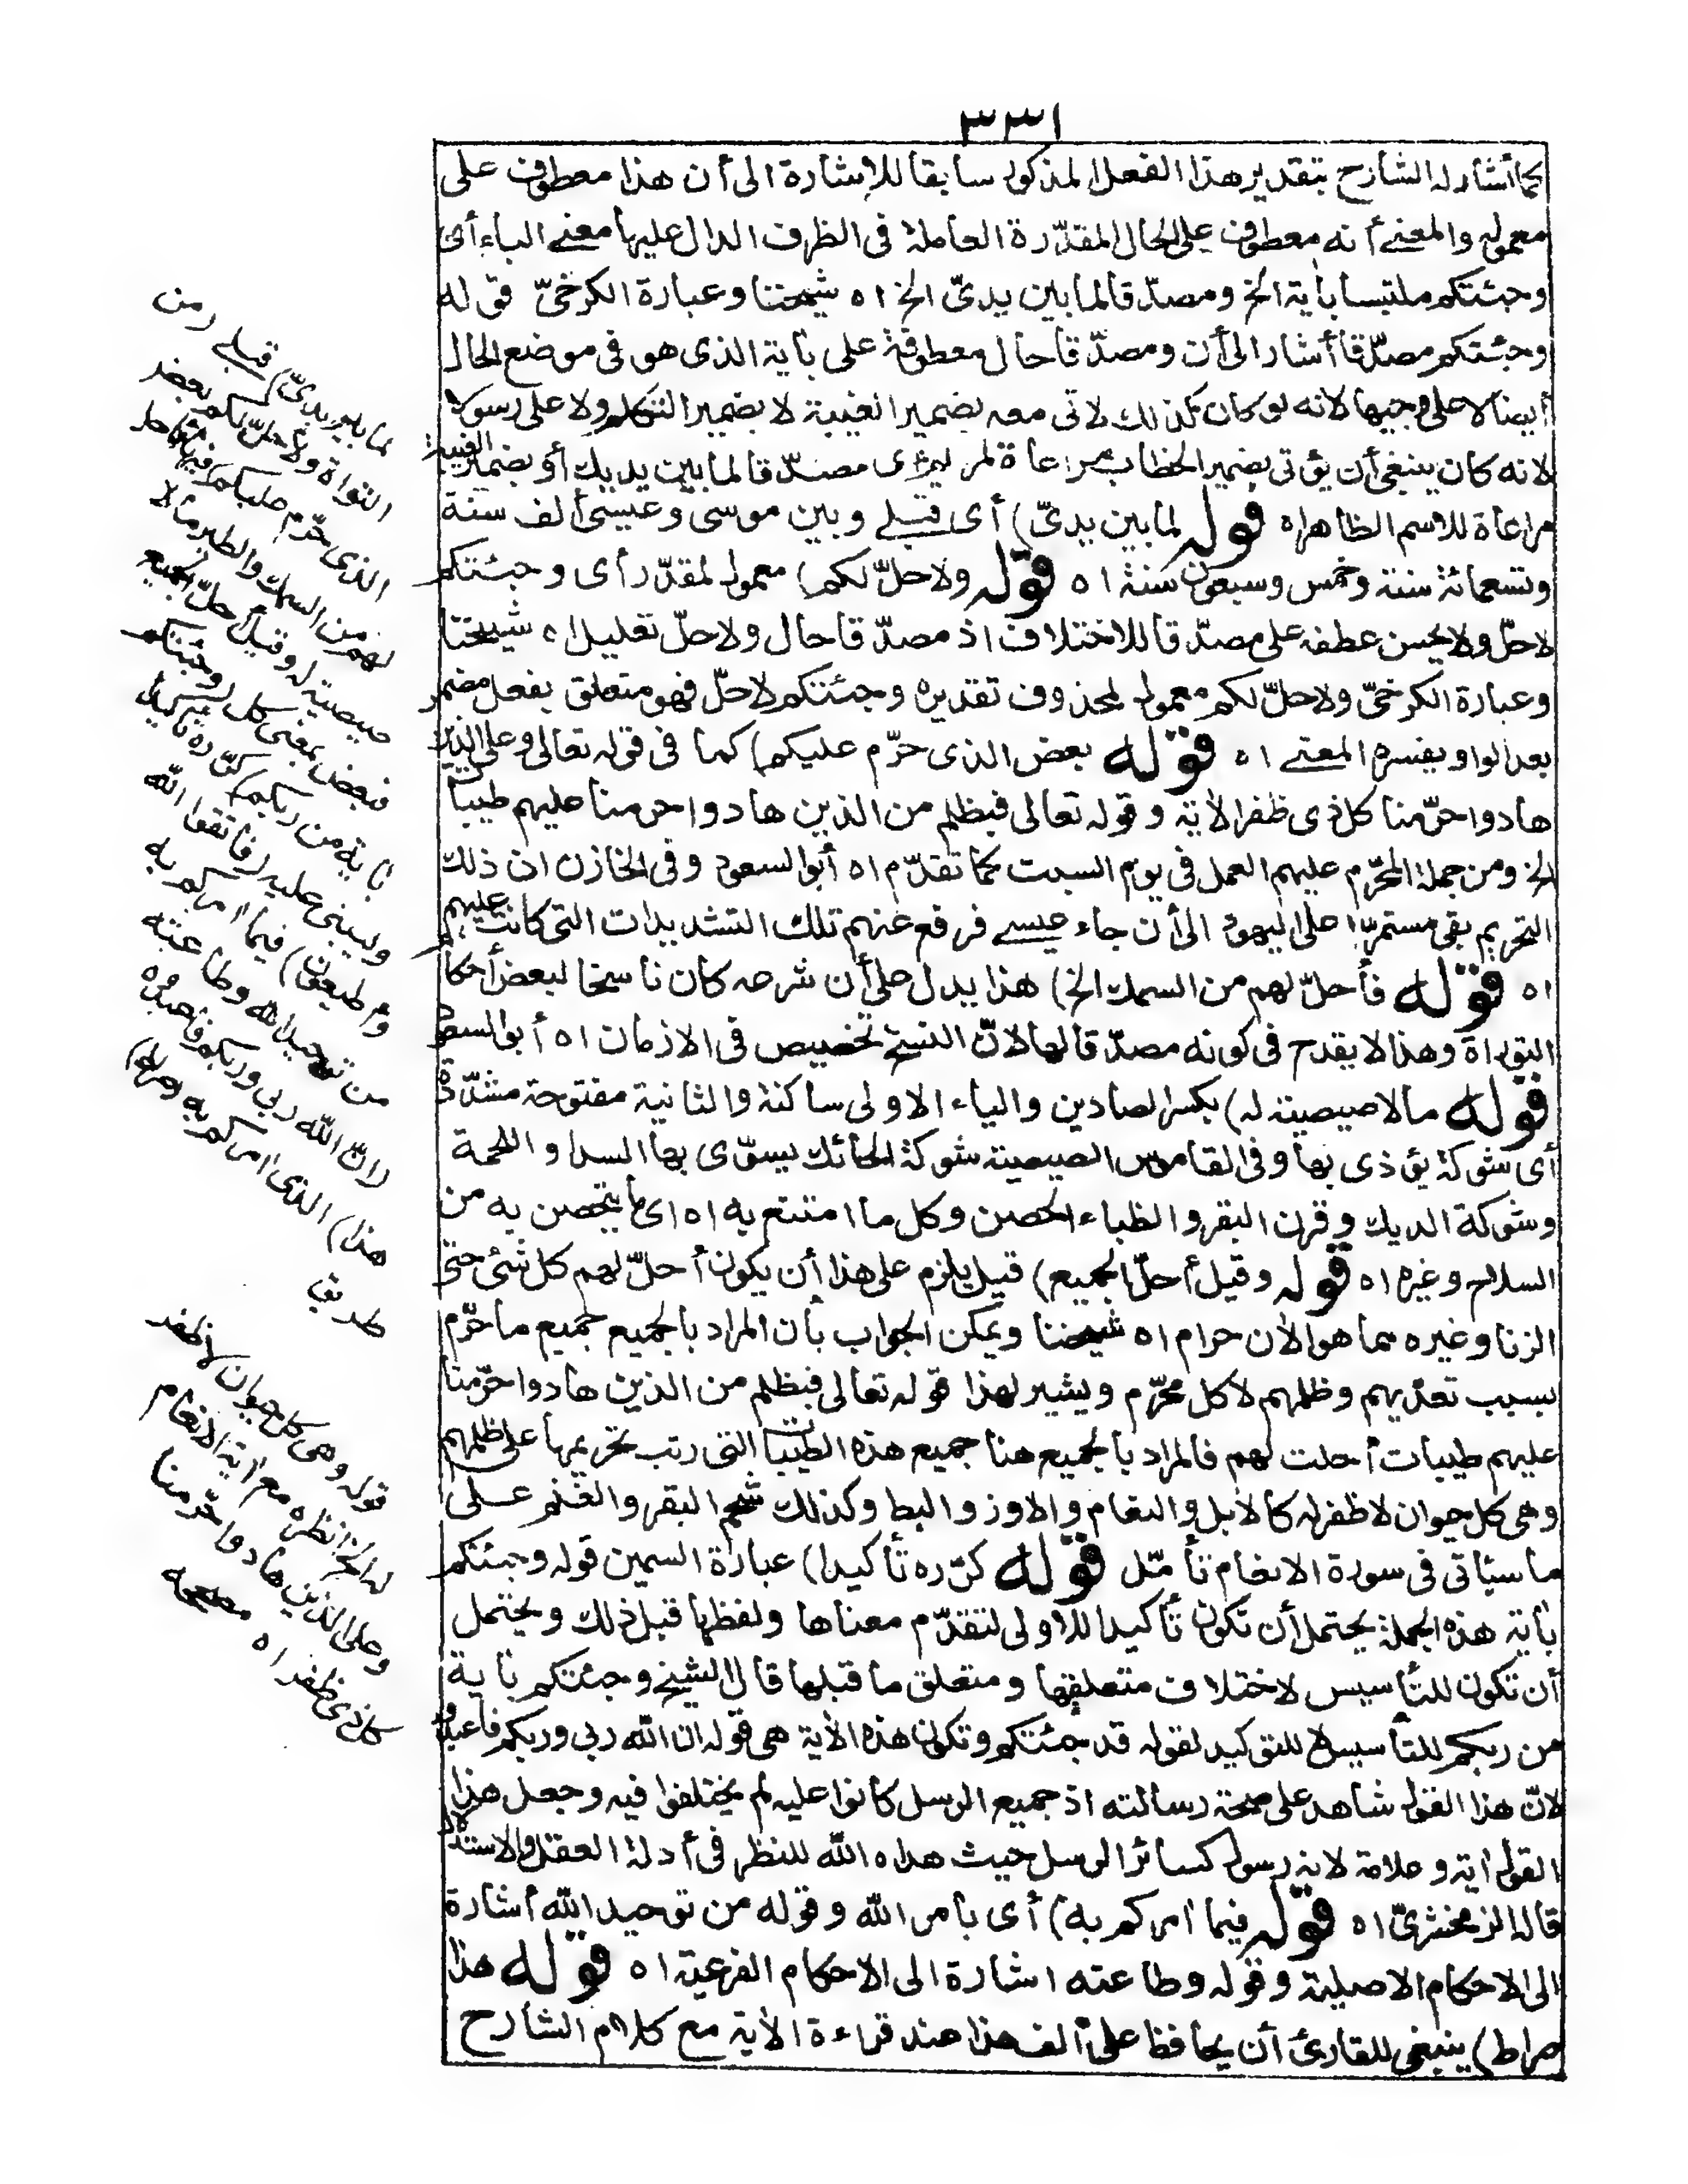 ٣٣١
كما أشار له الشارح بتقدير هذا الفعل المذكور سابقا للإشارة الى أن هذا معطوف على
معموله والمعنى أنه معطوف على الحال المقدّرة العاملة فى الظرف الدال عليها معنى الباء أى
وجئتكم ملتبسا بآية الخ ومصدّقا لما بين يدىّ الخ اه شيخنا وعبارة الكرخىّ قوله
وجئتكم مصدّقا أشار الى أن ومصدّقا حال معطوفة على بآية الذى هو فى موضع الحال
أيضا لا على وجيها لانه لو كان كذلك لاتى معه بضمير الغيبة لا بضمير التكلم ولا على رسولا
لانه كان ينبغى أن يؤتى بضمير الخطاب مراعاة لمريم أى مصدّقا لما بين يديك أو بضمير الغيبة
مراعاة للاسم الظاهر اه قوله لما بين يدىّ) أى قبلى وبين موسى وعيسى ألف سنة
وتسعمائة سنة وخمس وسبعون سنة اه قوله ولاحلّ لكم) معمول لمقدّر أى وجئتكم
لاحلّ ولا يحسن عطفه على مصدّقا للاختلاف اذ مصدّقا حال ولاحلّ تعليل اه شيخنا
وعبارة الكرخىّ ولاحلّ لكم معمول لمحذوف تقديره وجئتكم لاحلّ فهو متعلق بفعل مضمر
بعد الواو يفسره المعنى اه قوله بعض الذى حرّم عليكم) كما فى قوله تعالى وعلى الذين
هادوا حرّمنا كل ذى ظفر الآية وقوله تعالى فبظلم من الذين هادوا حرمنا عليهم طيبات
الخ ومن جملة المحرّم عليهم العمل فى يوم السبت كما تقدّم اه أبو السعود وفى الخازن ان ذلك
التحريم بقى مستمرّا على اليهود الى أن جاء عيسى فرفع عنهم تلك التشديدات التى كانت عليهم
اه قوله فأحلّ لهم من السمك الخ) هذا يدل على أن شرعه كان ناسخا لبعض أحكام
التوراة وهذا لا يقدح فى كونه مصدّقا لها لانّ النسخ تخصيص فى الازمان اه أبو السعود
قوله مالا صيصية له) بكسر الصادين والياء الاولى ساكنة والثانية مفتوحة مشدّدة
أى شوكة يؤذى بها وفى القاموس الصيصية شوكة الحائك يسوّى بها السدا واللحمة
وشوكة الديك وقرن البقر والظباء والحصن وكل ما امتنع به اه اى ما يتحصن به من
السلاح وغيره اه قوله وقيل أحلّ الجميع) قيل يلزم على هذا أن يكون أحلّ لهم كل شئ حتى
الزنا وغيره مما هو الآن حرام اه شيخنا ويمكن الجواب بأن المراد بالجميع جميع ما حرّم
بسبب تعدّيهم وظلمهم لا كل محرّم ويشير لهذا قوله تعالى فبظلم من الذين هادوا حرّمنا
عليهم طيبات أحلت لهم فالمراد بالجميع هنا جميع هذه الطيبات التى رتب تحريمها على ظلمهم
وهى كل حيوان لا ظفر له كالابل والنعام والاوز والبط وكذلك شحم البقر والغنم على
ما سيأتى فى سورة الانعام تأمّل قوله كرّره تأكيدا) عبارة السمين قوله وجئتكم
بآية هذه الجملة يحتمل أن تكون تأكيدا للاولى لتقدّم معناها ولفظها قبل ذلك ويحتمل
أن تكون للتأسيس لاختلاف متعلقها ومتعلق ما قبلها قال الشيخ وجئتكم بآية
من ربكم للتأسيس لا للتوكيد لقوله قد جئتكم وتكون هذه الآية هى قوله ان الله ربى وربكم فاعبدوه
لانّ هذا القول شاهد على صحة رسالته اذ جميع الرسل كانوا عليه لم يختلفوا فيه وجعل هذا
القول آية وعلامة لانه رسول كسائر الرسل حيث هداه الله للنظر فى أدلة العقل والاستدلال
قاله الزمخشرىّ اه قوله فيما آمركم به) أى بأمر الله وقوله من توحيد الله أشارة
الى الاحكام الاصلية وقوله وطاعته اشارة الى الاحكام الفرعية اه قوله هذا
صراط) ينبغى للقارئ أن يحافظ على ألف هذا عند قراءة الآية مع كلام الشارح
لما بين يدىّ) قبلى (من
التوراة ولأحلّ لكم بعض
الذى حرّم عليكم) فيها فأحل
لهم من السمك والطير مالا
صيصية له وقيل أحلّ الجميع
فبعض بمعنى كل (وجئتكم
بآية من ربكم) كرّره تأكيدا
وليبنى عليه (فاتقوا الله
وأطيعون) فيما آمركم به
من توحيد الله وطاعته
(انّ الله ربى وربكم فاعبدوه
هذا) الذى آمركم به (صراط)
طريق
قوله وهى كل حيوان لا ظفر
له الخ انظره مع آية الانعام
وعلى الذين هادوا حرّمنا
كل ذى ظفر اه مصححه